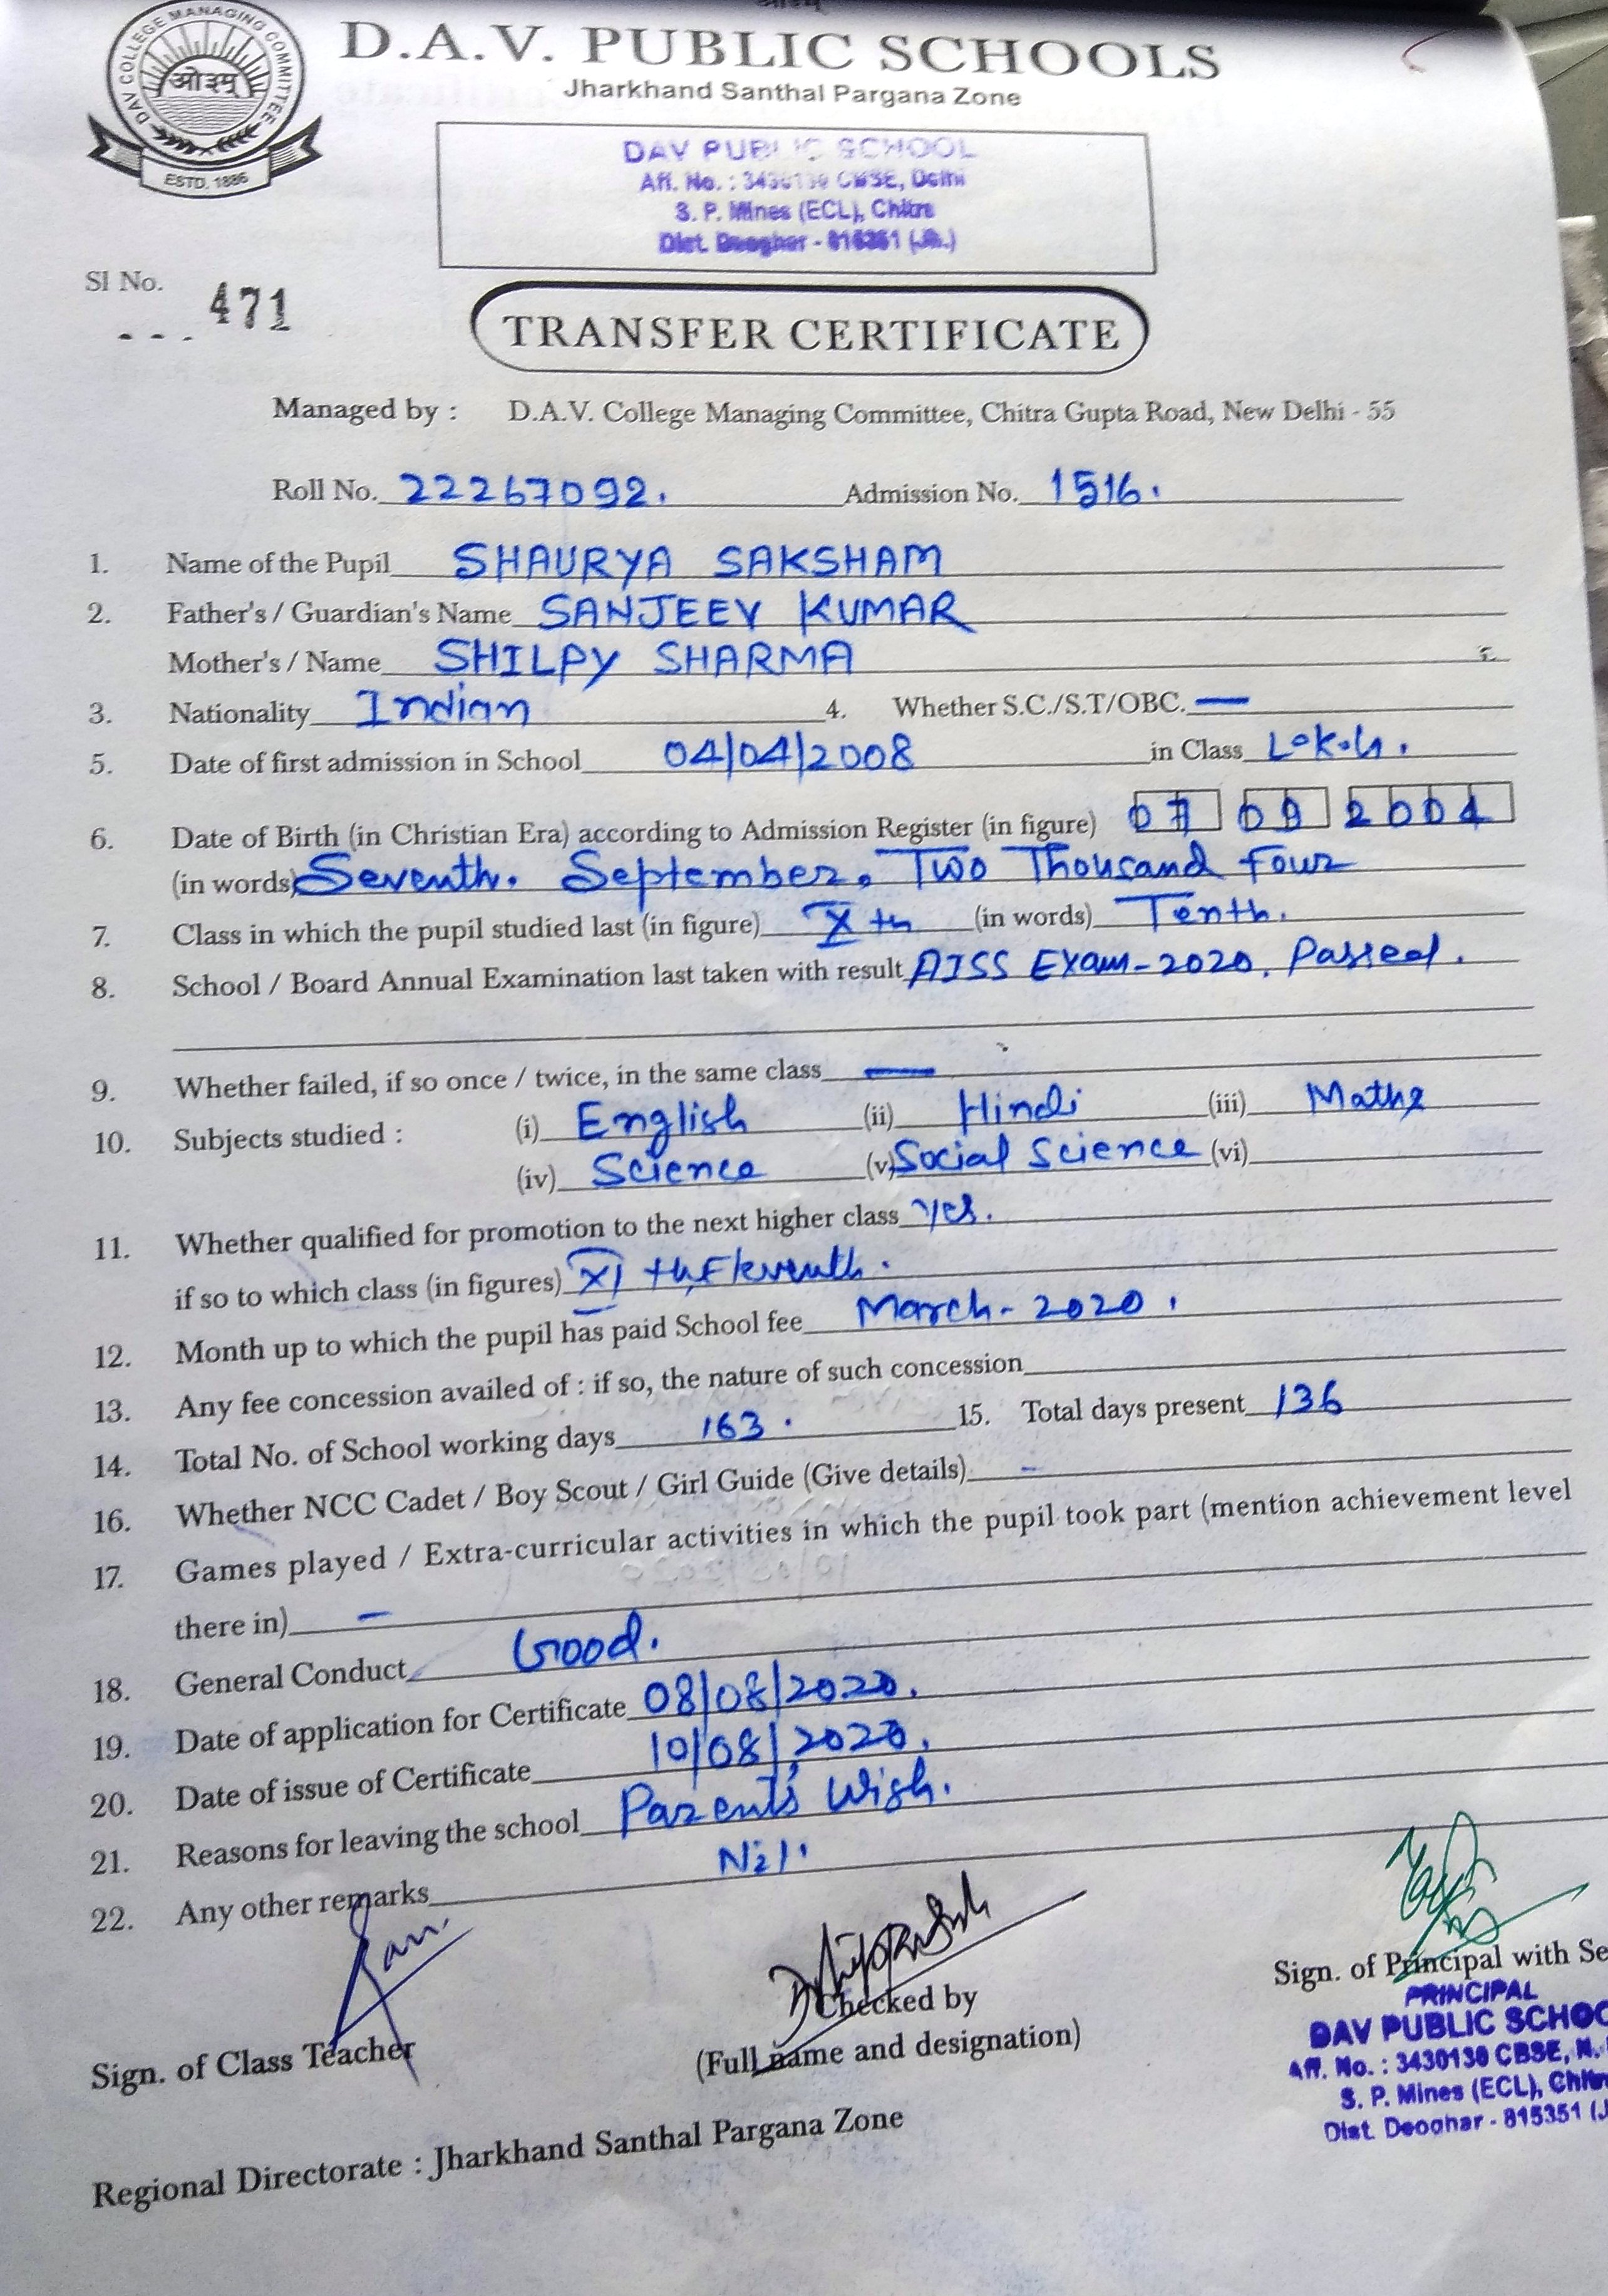 DAV COLLEGE MANAGING COMMITTEE
ओ३म्
ESTD. 1886
D.A.V. PUBLIC SCHOOLS
Jharkhand Santhal Pargana Zone
DAV PUBLIC SCHOOL
Aff. No. : 3430130 CBSE, Delhi
S. P. Mines (ECL), Chitra
Dist. Deoghar - 815351 (Jh.)
Sl No. 471
TRANSFER CERTIFICATE
Managed by : D.A.V. College Managing Committee, Chitra Gupta Road, New Delhi - 55
Roll No. 22267092. Admission No. 1516.
1. Name of the Pupil SHAURYA SAKSHAM
2. Father's / Guardian's Name SANJEEV KUMAR
Mother's / Name SHILPY SHARMA
3. Nationality Indian 4. Whether S.C./S.T/OBC. —
5. Date of first admission in School 04/04/2008 in Class L.K.G.
6. Date of Birth (in Christian Era) according to Admission Register (in figure) 07 09 2004
(in words) Seventh. September, Two Thousand Four
7. Class in which the pupil studied last (in figure) Xth (in words) Tenth.
8. School / Board Annual Examination last taken with result AISS Exam-2020. Passed.
9. Whether failed, if so once / twice, in the same class —
10. Subjects studied : (i) English (ii) Hindi (iii) Maths
(iv) Science (v) Social Science (vi)
11. Whether qualified for promotion to the next higher class Yes.
if so to which class (in figures) XI th, Eleventh.
12. Month up to which the pupil has paid School fee March-2020.
13. Any fee concession availed of : if so, the nature of such concession
14. Total No. of School working days 163. 15. Total days present 136
16. Whether NCC Cadet / Boy Scout / Girl Guide (Give details) -
17. Games played / Extra-curricular activities in which the pupil took part (mention achievement level
there in) -
18. General Conduct Good.
19. Date of application for Certificate 08/08/2020.
20. Date of issue of Certificate 10/08/2020.
21. Reasons for leaving the school Parent's Wish.
22. Any other remarks Nil.
Sign. of Class Teacher
Checked by
(Full name and designation)
Sign. of Principal with Se
PRINCIPAL
DAV PUBLIC SCHOO
Aff. No. : 3430130 CBSE, N.
S. P. Mines (ECL), Chitra
Dist. Deoghar - 815351 (J
Regional Directorate : Jharkhand Santhal Pargana Zone